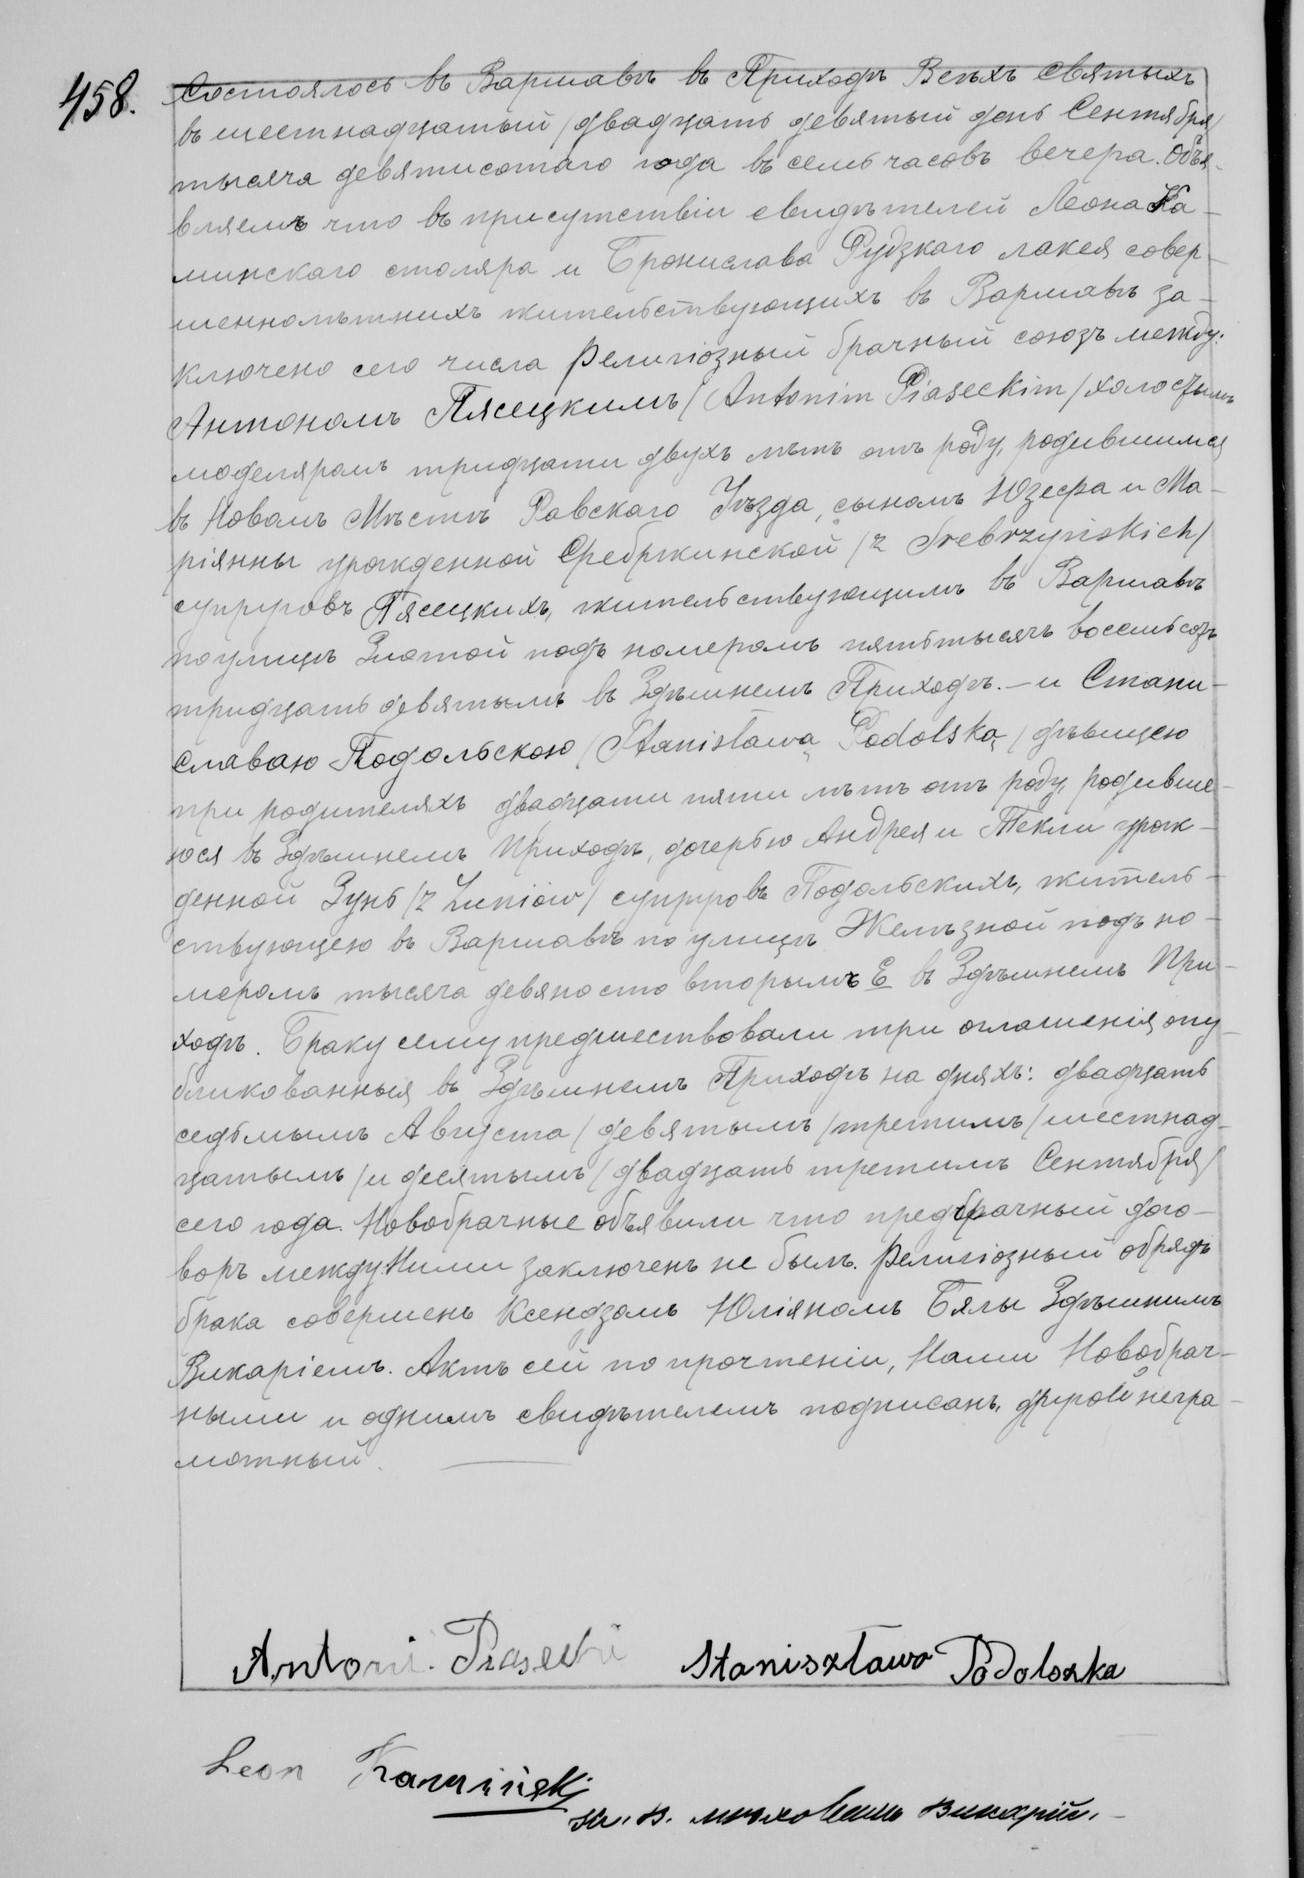 458.
Состоялось въ Варшавѣ въ Приходѣ Всѣхъ Святыхъ
въ шестнадцатый /двадцать девятый день Сентября/
тысяча девятисотаго года въ семь часовъ вечера. Объя-
вляемъ что въ присутствіи свидѣтелей Леона Ка-
минскаго столяра и Бронислава Рудзкаго лакея совер-
шеннолѣтнихъ жительствующихъ въ Варшавѣ за-
ключено сего числа религіозный брачный союзъ между:
Антономъ Пясецкимъ /Antonim Piaseckim/ холостымъ
моделяромъ тридцати двухъ лѣтъ отъ роду, родившимся
въ Новомъ Мѣстѣ Равскаго Уѣзда, сыномъ Юзефа и Ма-
ріянны урожденной Сребржинской /z Srebrzyńskich/
супруговъ Пясецкихъ, жительствующимъ въ Варшавѣ
по улицѣ Злотой подъ номеромъ пять тысячъ восемьсотъ
тридцать девятымъ въ Здѣшнемъ Приходѣ. — и Стани-
славою Подольскою /Stanisławą Podolską/ дѣвицею
при родителяхъ двадцати пяти лѣтъ отъ роду, родивше-
юся въ Здѣшнемъ Приходѣ, дочерью Андрея и Текли урож-
денной Зунь /z Zuniów/ супруговъ Подольскихъ, житель-
ствующею въ Варшавѣ по улицѣ Желѣзной подъ но-
меромъ тысяча девяносто вторымъ Е въ Здѣшнемъ При-
ходѣ. Браку сему предшествовали три оглашенія опу-
бликованныя въ Здѣшнемъ Приходѣ на дняхъ: двадцать
седьмымъ Августа /девятымъ/ третимъ /шестнад-
цатымъ/ и десятымъ /двадцать третимъ Сентября/
сего года. Новобрачные объявили что предбрачный дого-
воръ между Ними заключенъ не былъ. Религіозный обрядъ
брака совершенъ Ксендзомъ Юліяномъ Бялы Здѣшнимъ
Викаріемъ. Актъ сей по прочтеніи, Нами Новобрач-
ными и однимъ свидѣтелемъ подписанъ, другой негра-
мотный.
Antoni Piasecki Staniszława Podolszka
Leon Kamiński
Викарій.